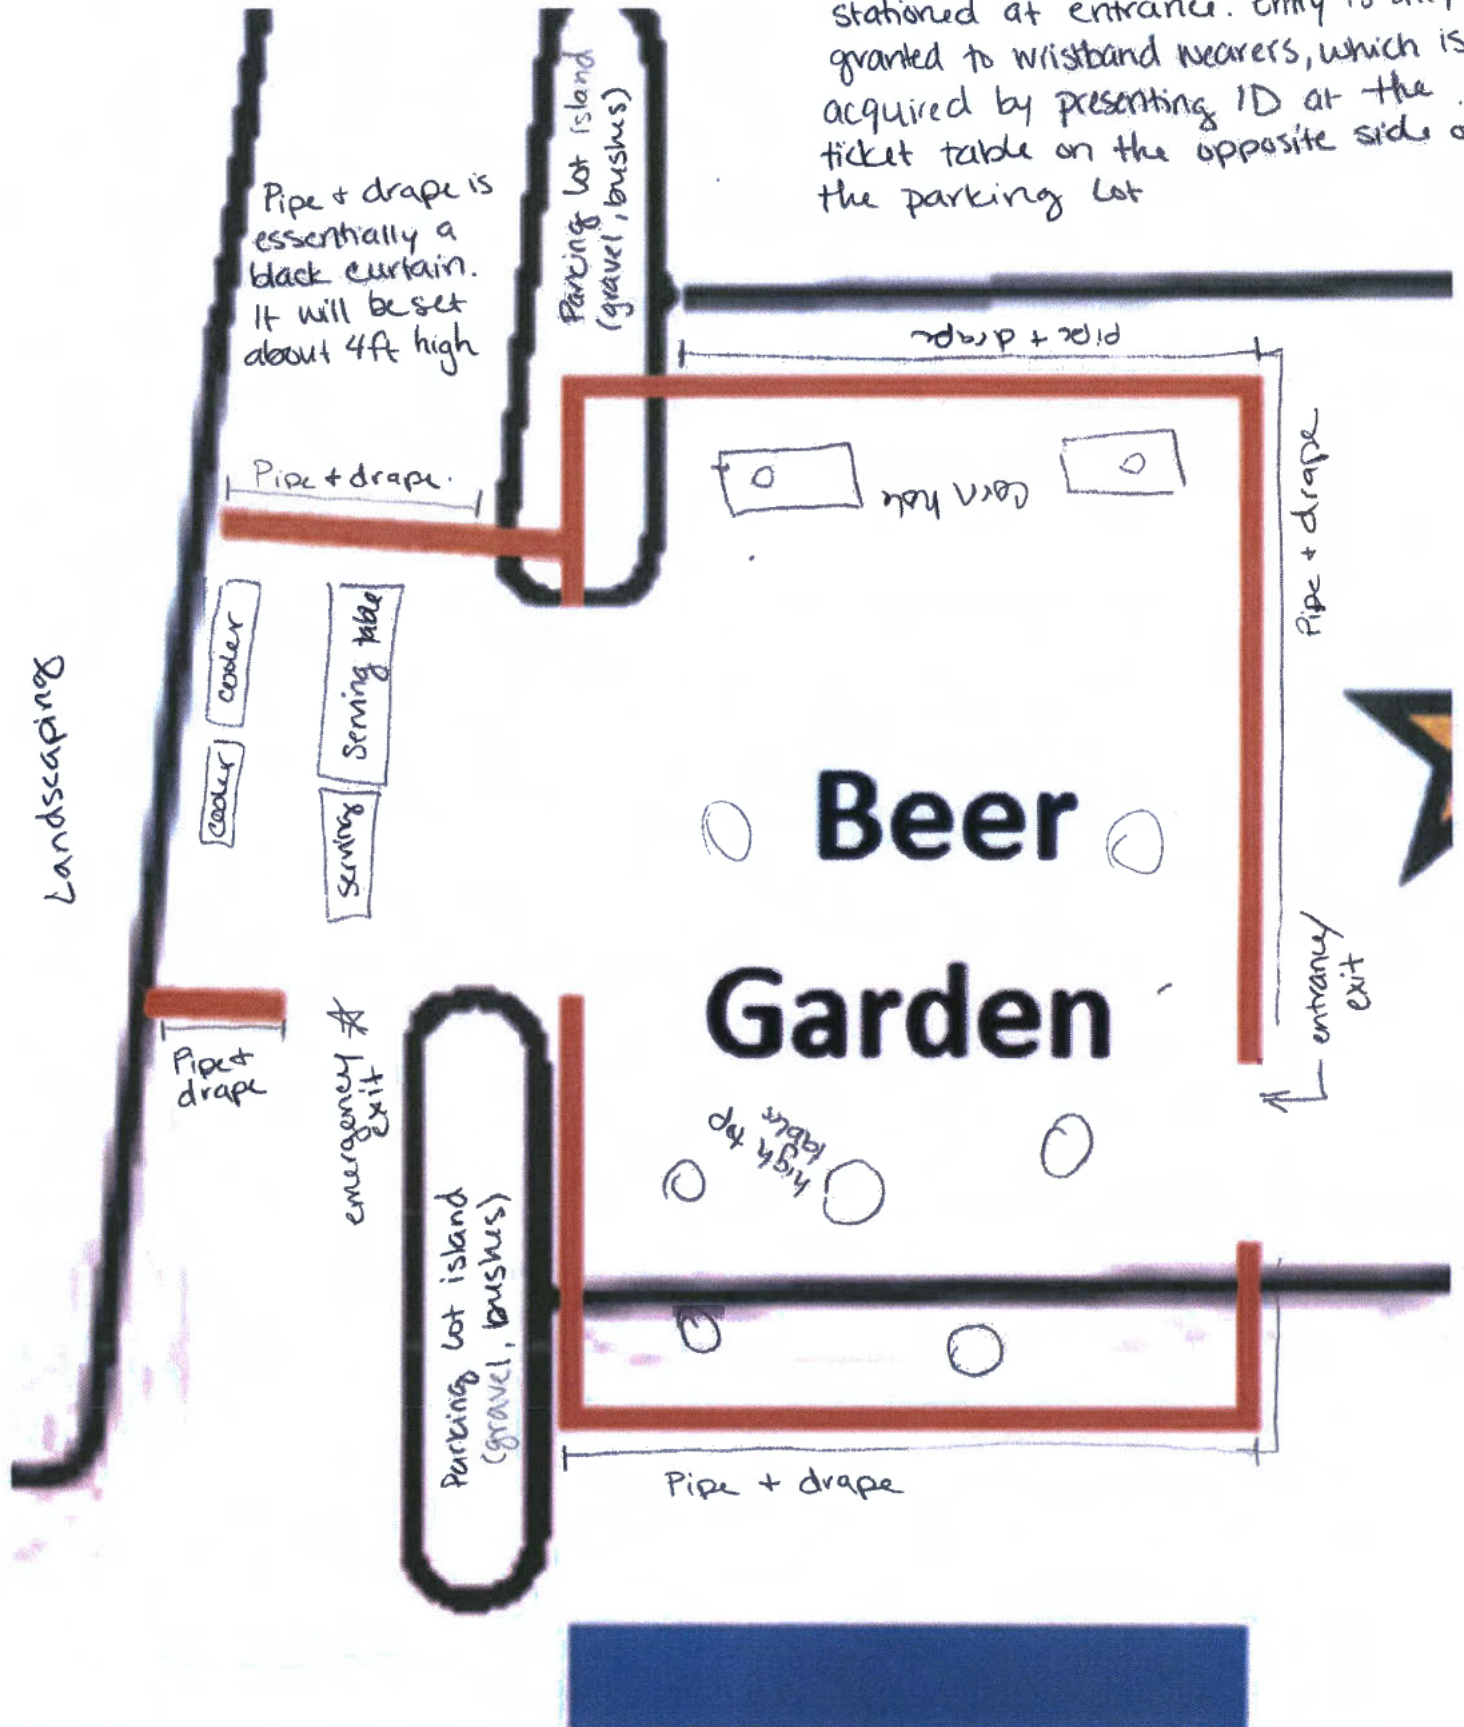 stationed at entrance. Entry is only
granted to wristband wearers, which is
acquired by presenting ID at the
ticket table on the opposite side o
the parking lot
Pipe + drape is
essentially a
black curtain.
It will be set
about 4ft high
Parking lot island
(gravel, bushes)
pipe + drape
Pipe + drape.
corn hole
Pipe + drape
cooler
Serving table
Landscaping
cooler
serving
Beer
Garden
entrance/
exit
Pipe +
drape
emergency
exit
high top
tables
Parking lot island
(gravel, bushes)
Pipe + drape